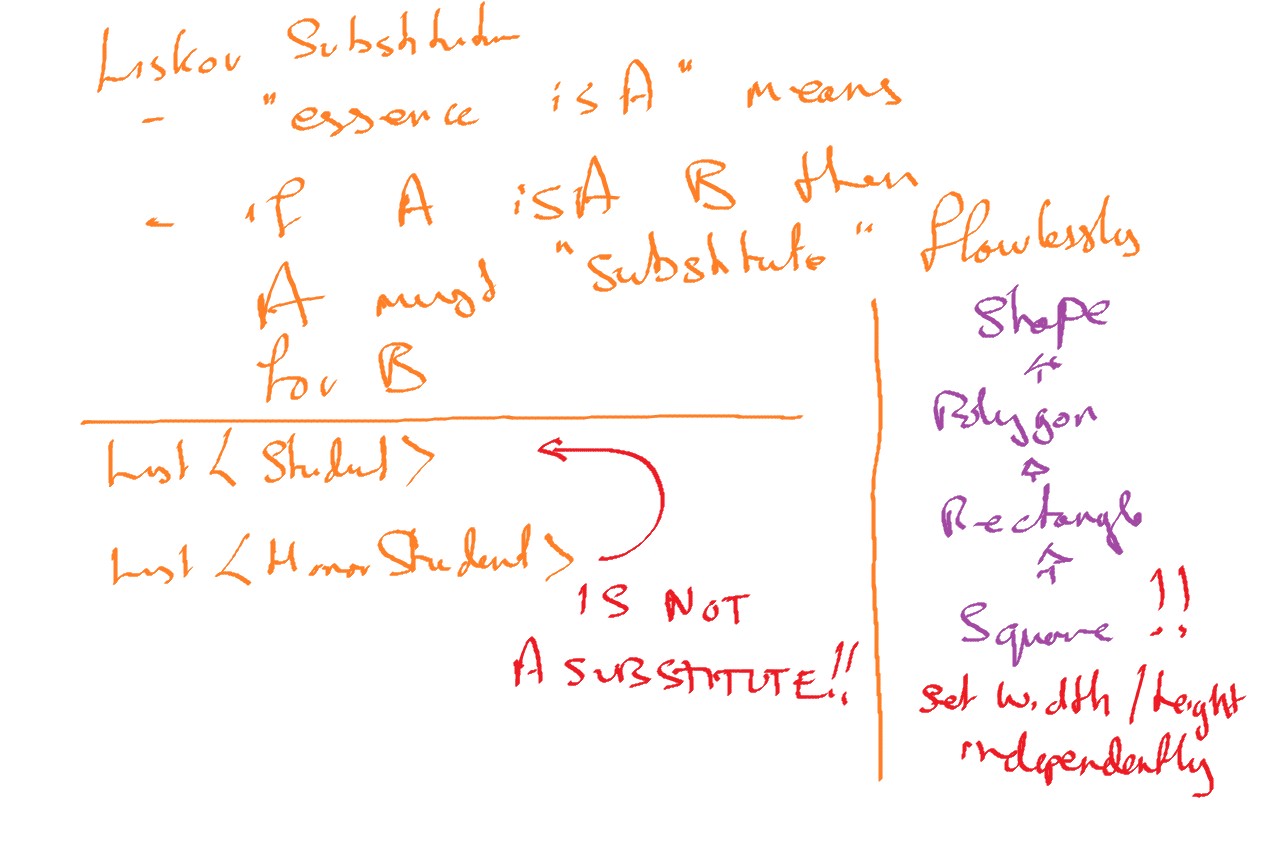 Liskov Substitution
- "essence isA" means
- if A isA B then
A must "substitute" flawlessly
for B
List < Student >
List < HonorStudent >
IS NOT
A SUBSTITUTE!!
Shape
Polygon
Rectangle
Square !!
set width / height
independently